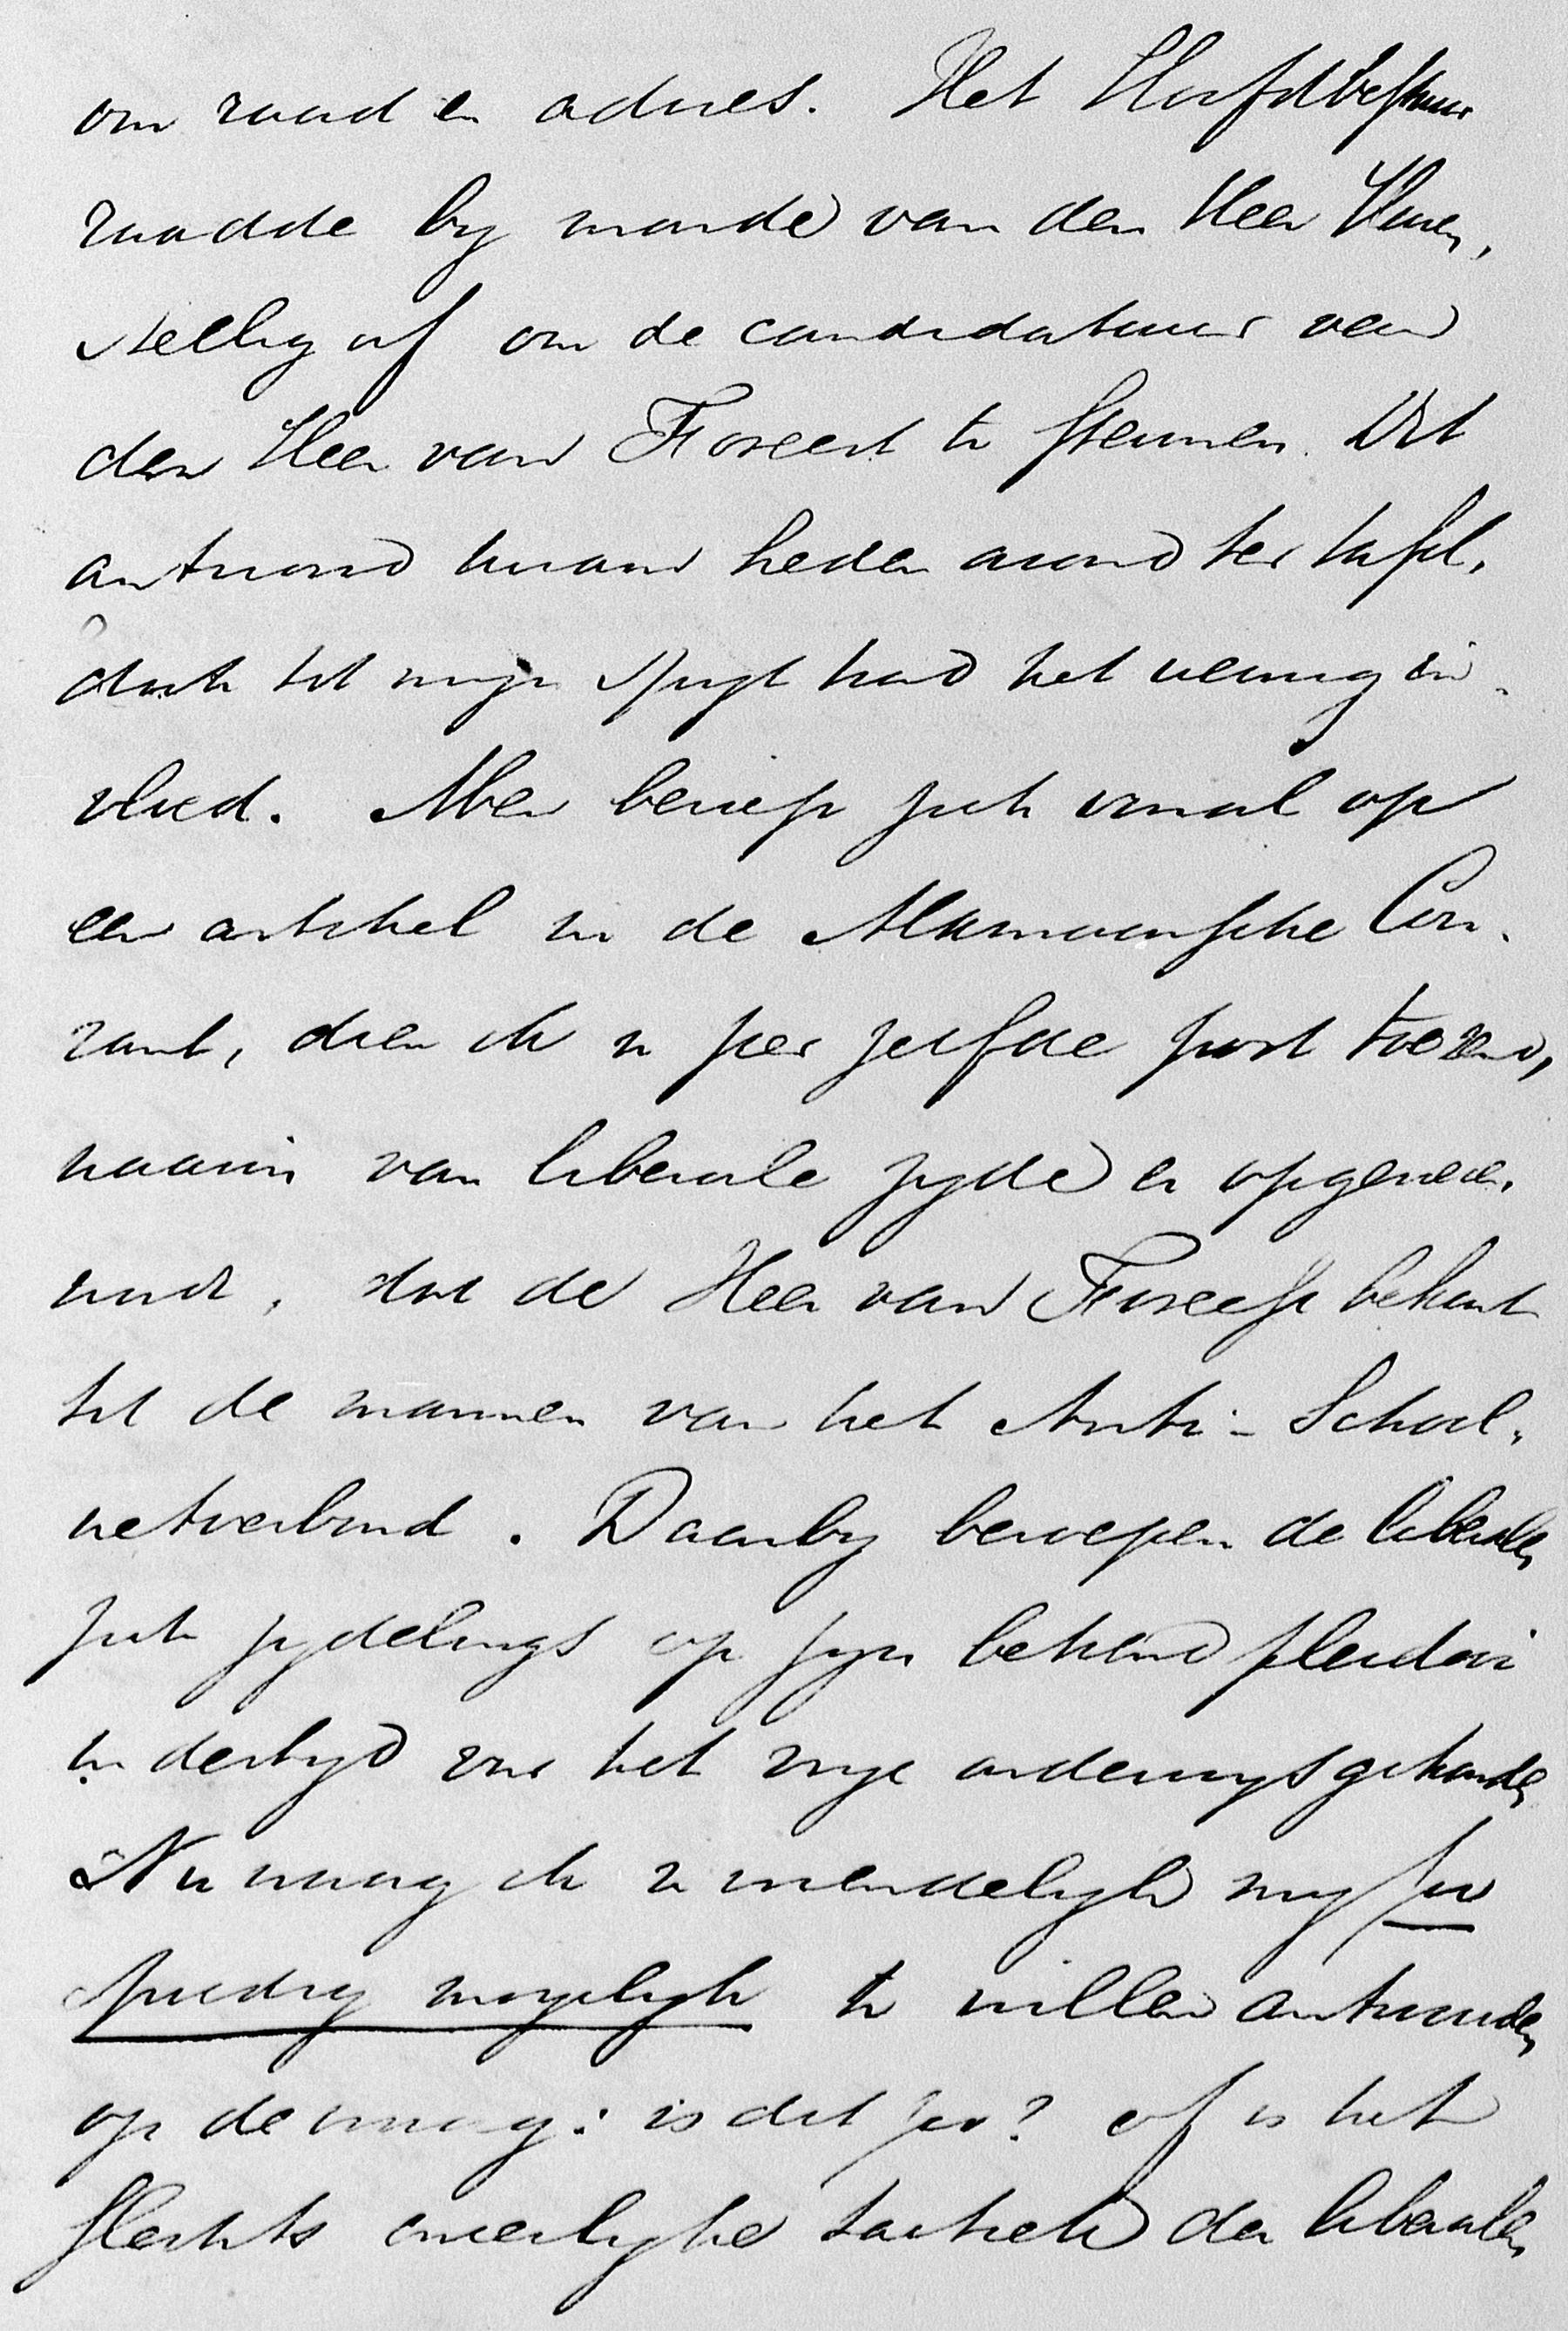 om raad en advies. Het Hoofdbestuur
raadde by monde van den Heer
stellig af om de candidatuur van
den Heer van Foreest te steunen. Dit
antwoord kwam heden avond ter tafel,
doch tot myn spyt had het weinig in-
vloed. Men beriep zich vooral op
een artikel in de Alkmaarsche Cou-
rant, dien ik u per zelfde post toezend,
waarin van liberale zyde er op gewezen
wordt, dat de Heer van Foreest behoort
tot de mannen van het Anti-School-
wetverbond. Daarby beroepen de liberalen
zich zydelings op zyn bekend pleidooi
indertyd voor het vrye onderwys gehouden
Nu vraag ik u vriendelyk my zoo
spoedig mogelyk te willen antwoorden
op de vraag: is dit zoo? of is het
slechts oneerlyke tactiek der liberalen